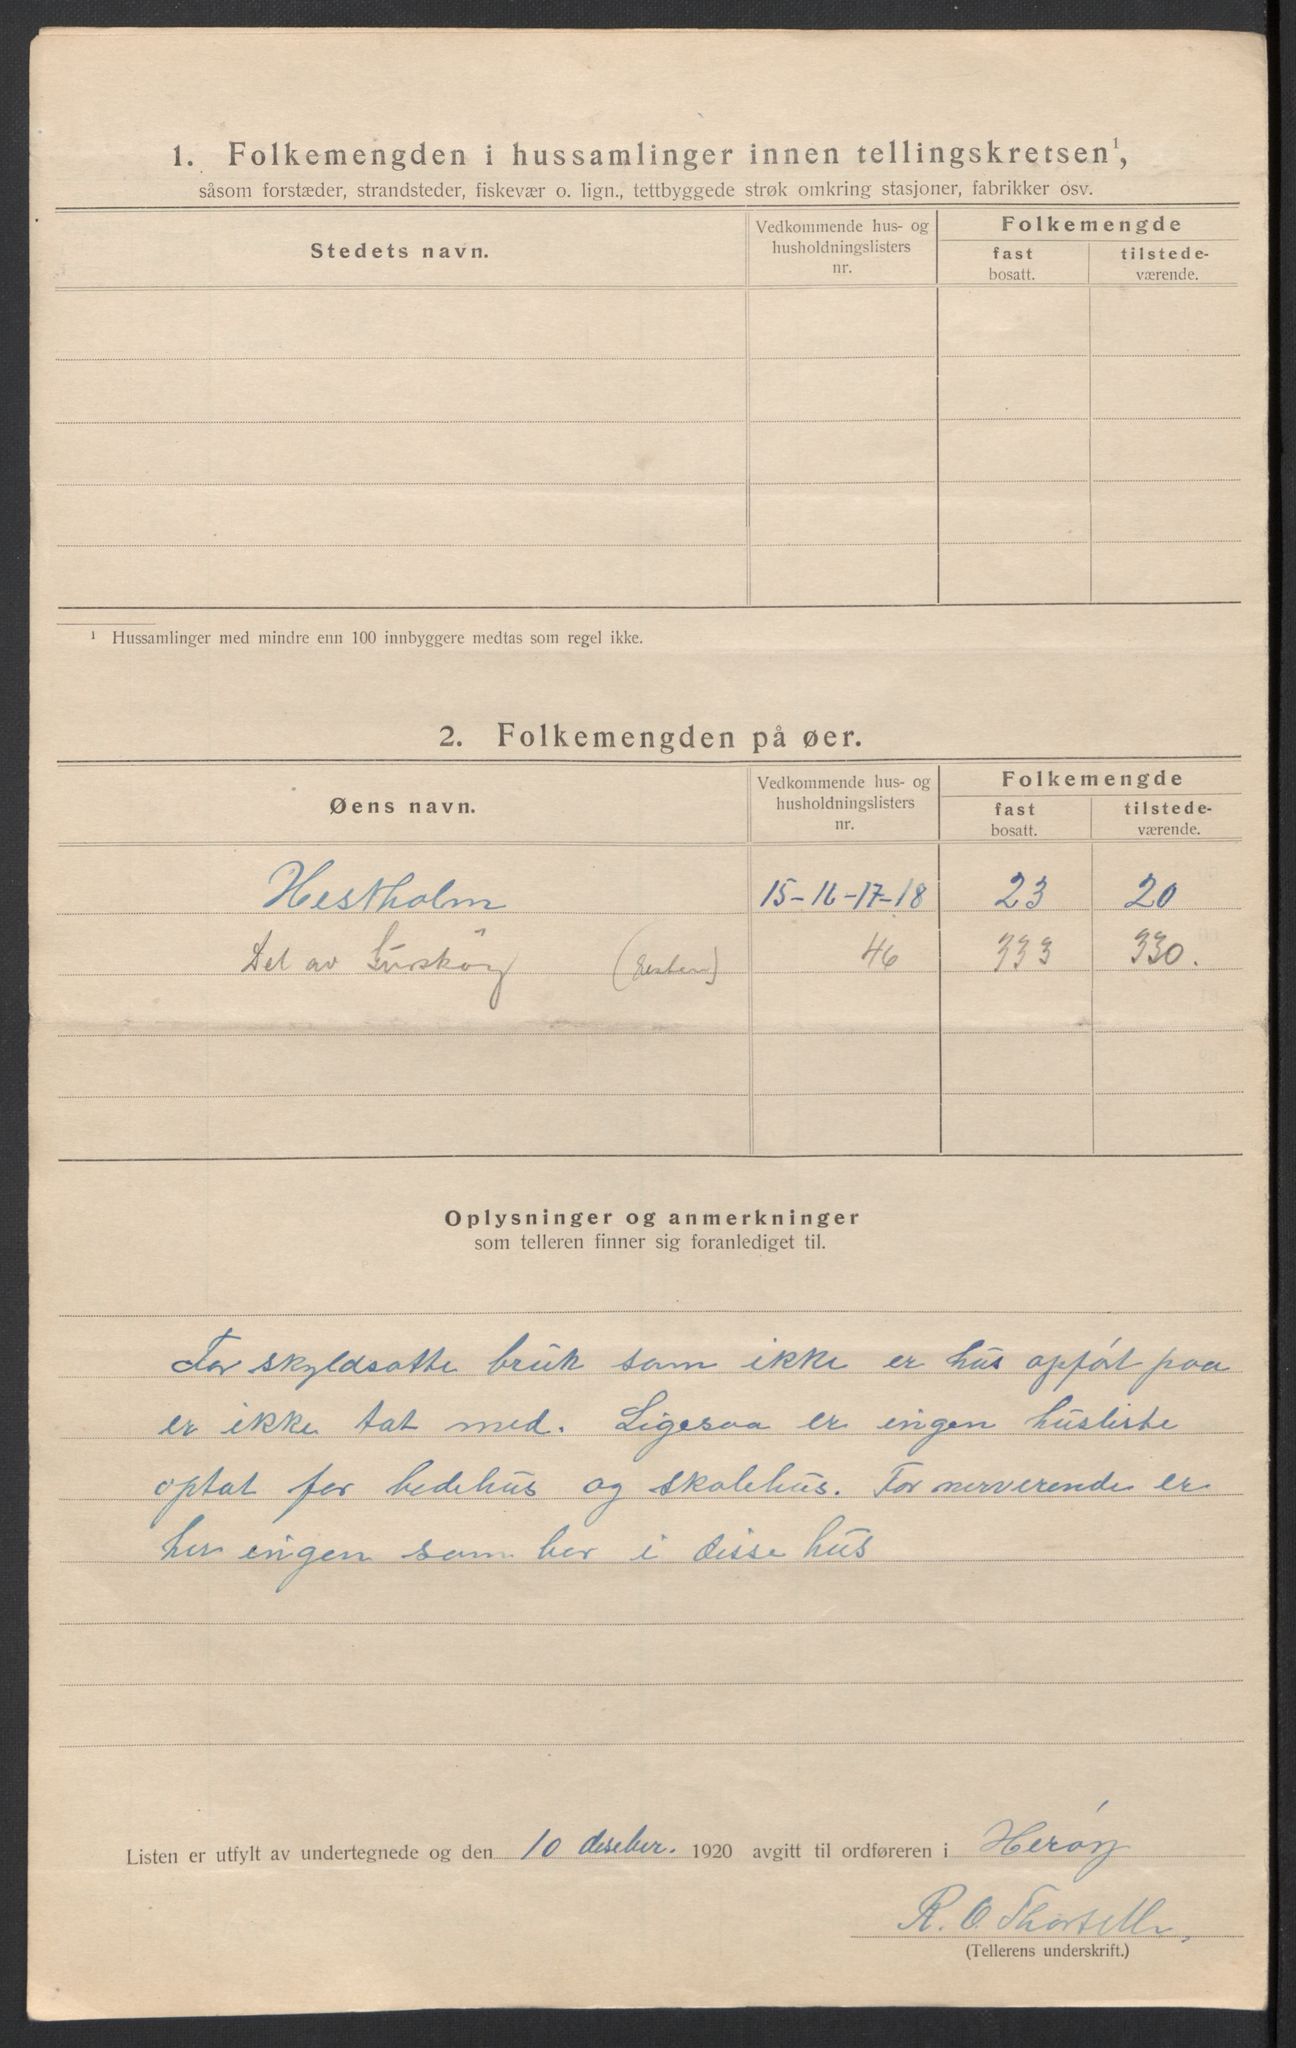 1. Folkemengden i hussamlinger innen tellingskretsen¹,
såsom forstæder, strandsteder, fiskevær o. lign., tettbyggede strøk omkring stasjoner, fabrikker osv.
Stedets navn.
Vedkommende hus- og
husholdningslisters
nr.
Folkemengde
fast
bosatt.
tilstede-
værende.
¹ Hussamlinger med mindre enn 100 innbyggere medtas som regel ikke.
2. Folkemengden på øer.
Øens navn.
Vedkommende hus- og
husholdningslisters
nr.
Folkemengde
fast
bosatt.
tilstede-
værende.
Hestholm 15-16-17-18 23 20
Del av Gurskøy 46 333 330.
Oplysninger og anmerkninger
som telleren finner sig foranlediget til.
For skyldsatte bruk som ikke er hus opført paa
er ikke tat med. Ligesaa er ingen husliste
optat for bedehus og skolehus. For nerverende er
her ingen som bor i disse hus
Listen er utfylt av undertegnede og den 10 deseber. 1920 avgitt til ordføreren i Herøy
R. O.
(Tellerens underskrift.)